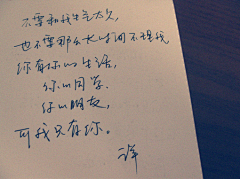 不要和我生气太久,
也不要那么长时间不理我
你有你的生活,
你的同学.
你的朋友,
可我只有你。